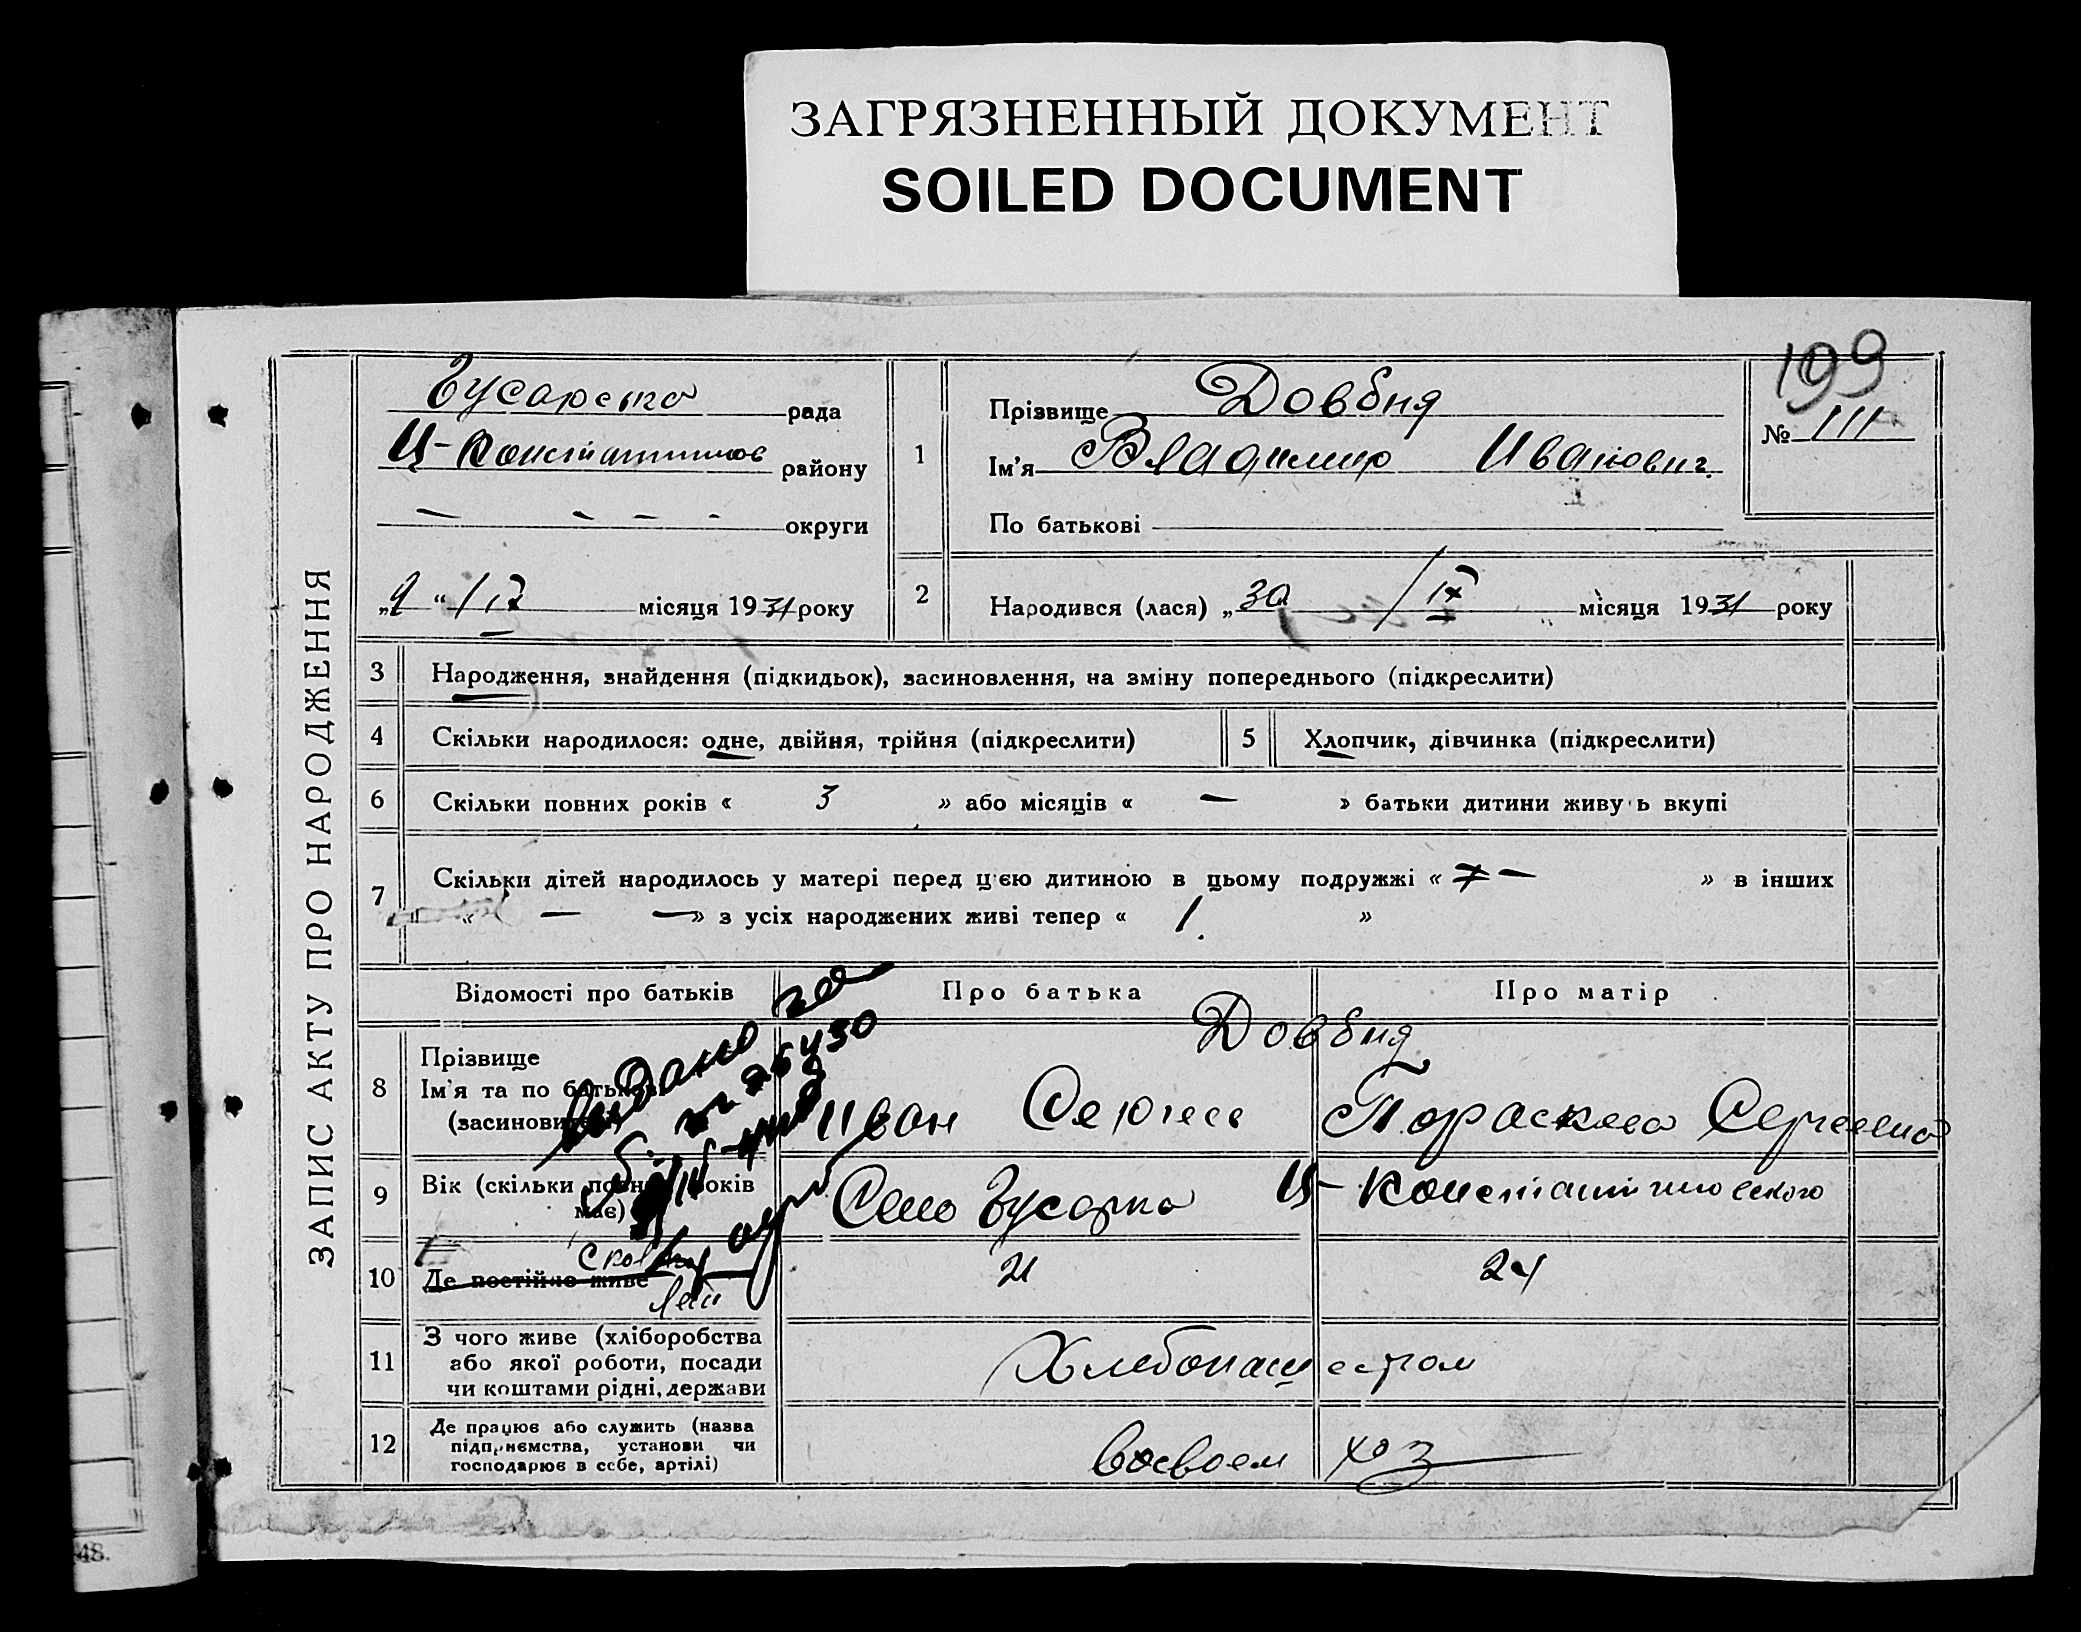 ЗАГРЯЗНЕННЫЙ ДОКУМЕНТ
SOILED DOCUMENT
199
ЗАПИС АКТУ ПРО НАРОДЖЕННЯ
Гусарська рада
Ц-Константинов району
— - - - округи
„9“ / IX місяця 1931 року
1 Прізвище Довбня
Ім'я Владимир Иванович
По батькові
№ 111
2 Народився (лася) „30 / IX місяця 1931 року
3 Народження, знайдення (підкидьок), засиновлення, на зміну попереднього (підкреслити)
4 Скільки народилося: одне, двійня, трійня (підкреслити)
5 Хлопчик, дівчинка (підкреслити)
6 Скільки повних років « 3 » або місяців « — » батьки дитини живуь вкупі
7 Скільки дітей народилось у матері перед цією дитиною в цьому подружжі « — » в інших
« — — » з усіх народжених живі тепер « 1. »
Відомості про батьків
Про батька
Про матір
8 Прізвище
Ім'я та по батькові
(засновителі)
Довбня
Иван
Параскева Сергеевна
9 Вік (скільки повних років
має)
Село Гусарка Ц-Константиновского
10 Де постійно живе
Сколько
лет
21
24
11 З чого живе (хліборобства
або якої роботи, посади
чи коштами рідні, держави
Хлебопашеством
12 Де працює або служить (назва
підприємства, установи чи
господарює в себе, артілі)
восвоем хоз
48.